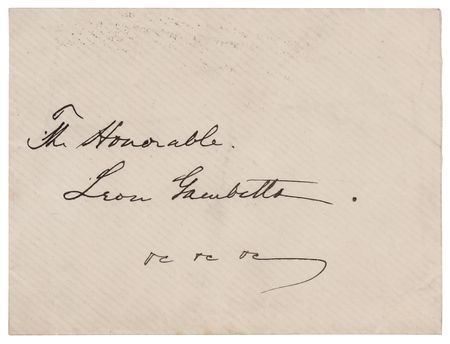 The Honorable.
Leon Gambetta.
&c &c &c